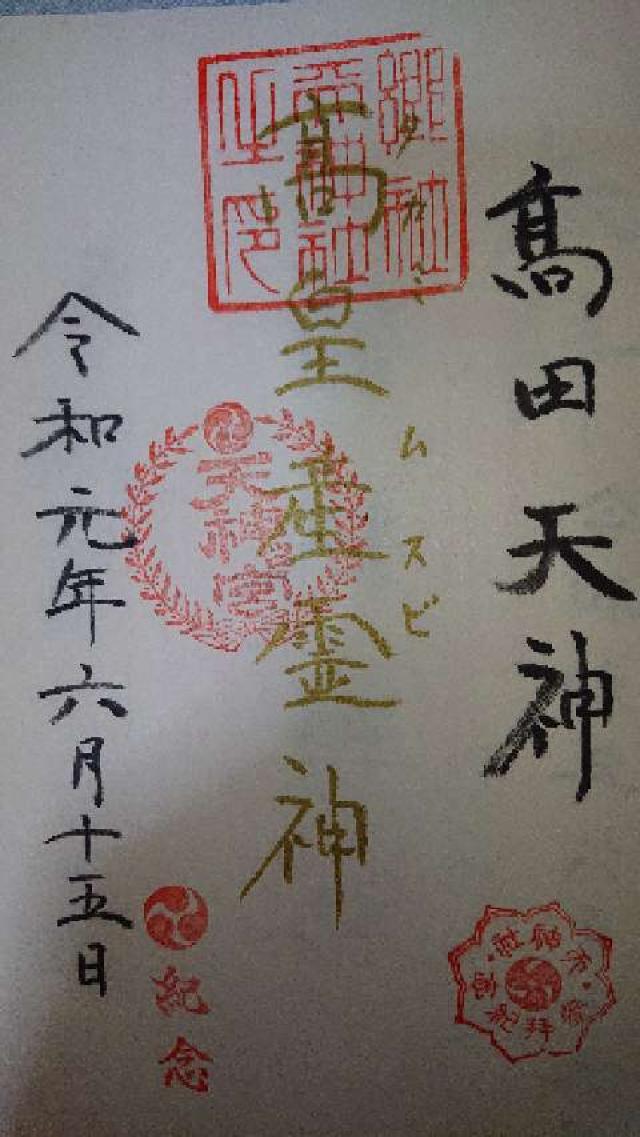 髙田天神
髙皇産霊神
タカミ
ムスビ
天神宮
令和元年六月十五日
紀念